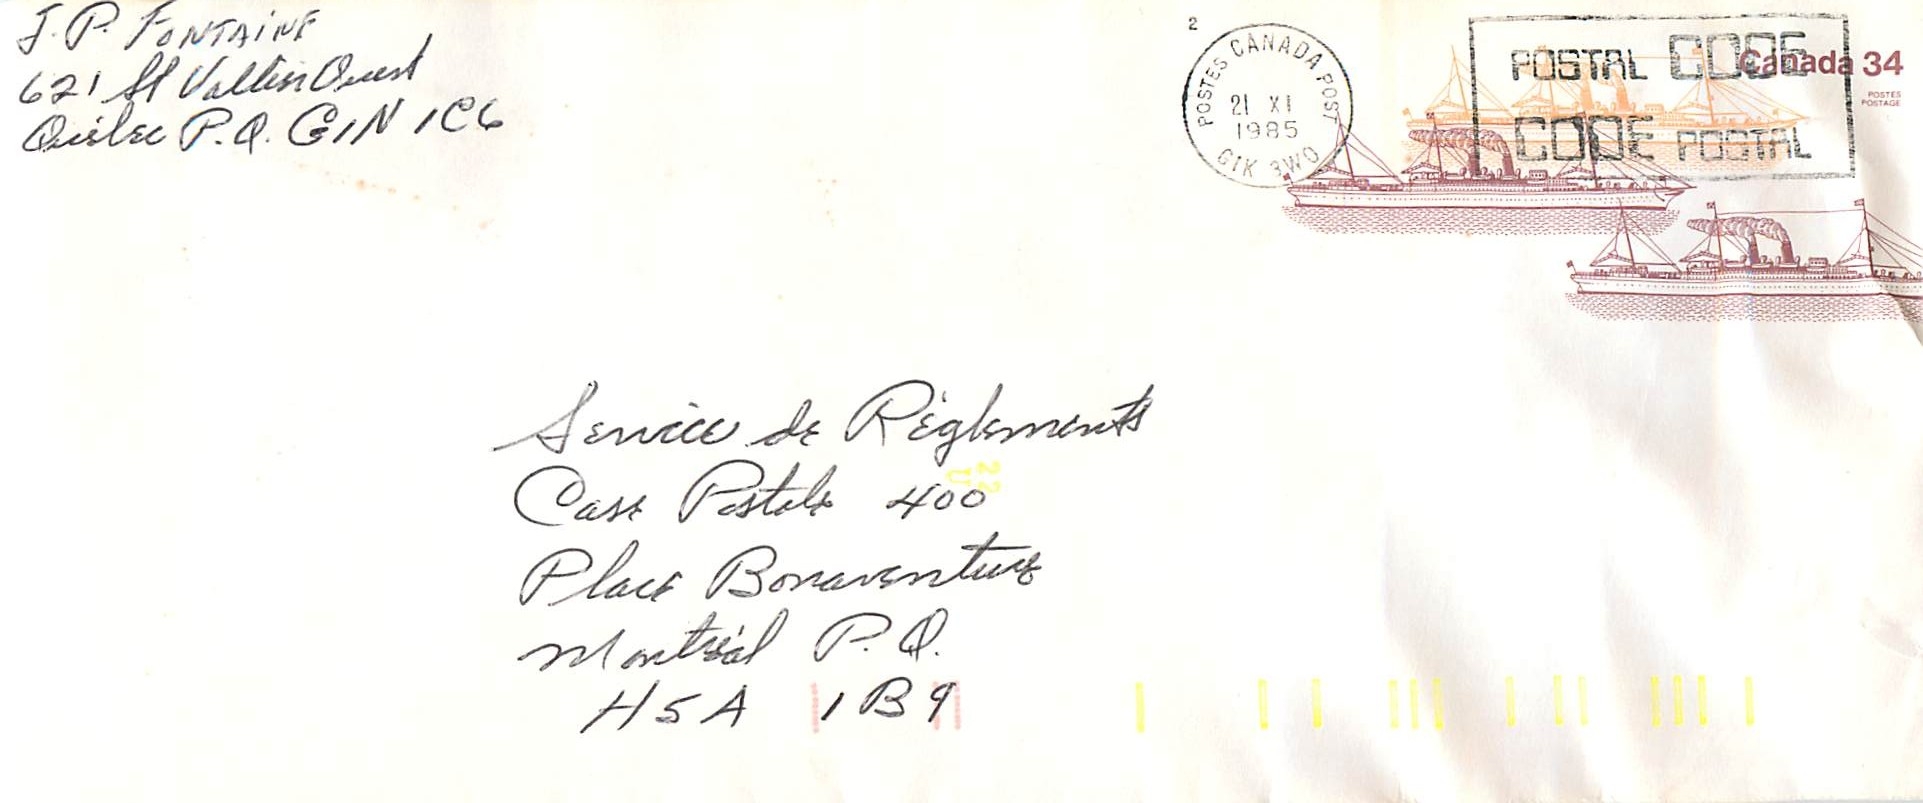 J. P. FONTAINE
621 St Vallier Ouest
Québec P.Q. G1N 1C6
2
POSTES CANADA POST
21 XI
1985
G1K 3W0
POSTAL CODE
CODE POSTAL
Canada 34
POSTES
POSTAGE
Service de Règlements
Case Postale 400
22
U
Place Bonaventure
Montréal P.Q.
H5A 1B9